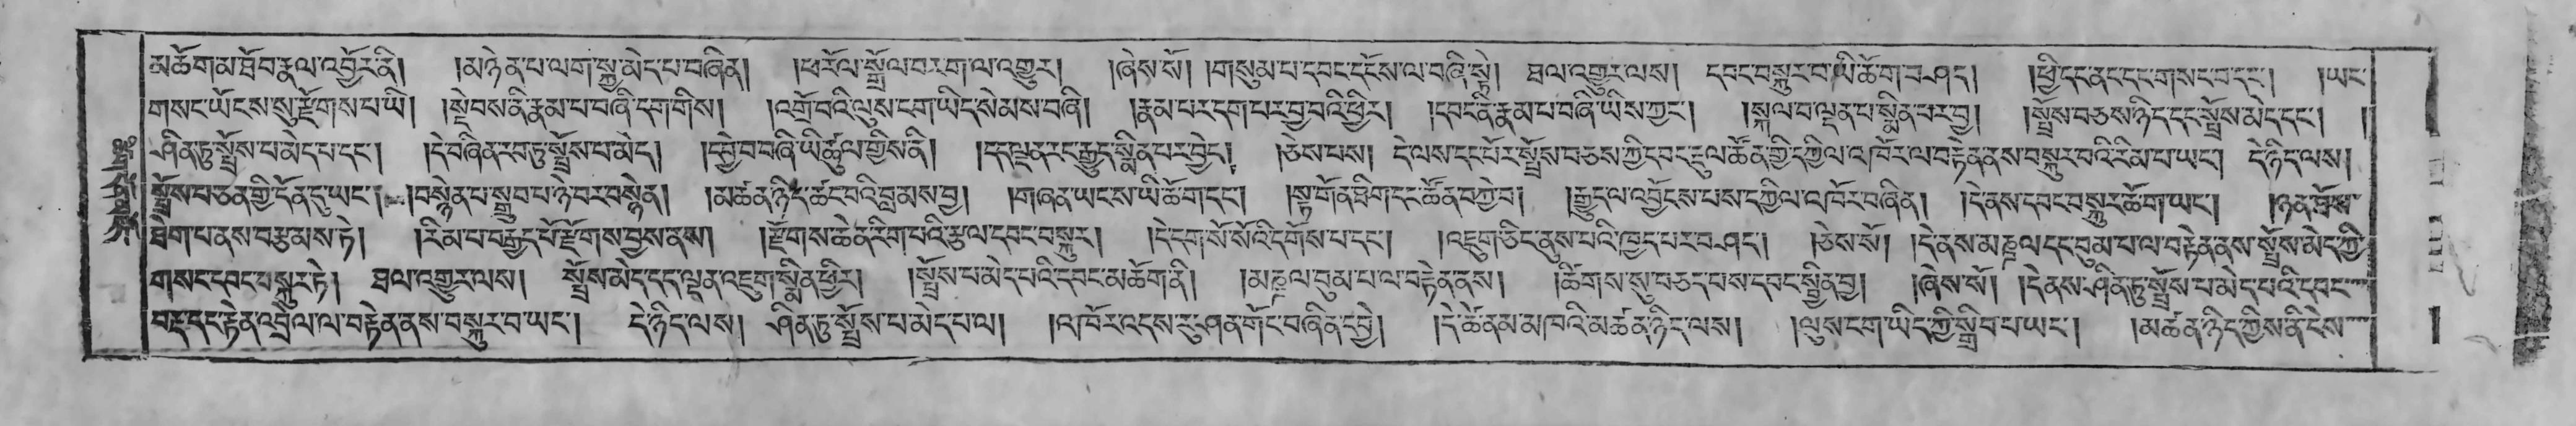 མཆོག་མ་ཐོབ་རྣལ་འབྱོར་ནི། །མ་ཉེན་པ་ལག་སྐྱ་མེད་པ་བཞིན། །ཕ་རོལ་སྒྲོལ་བར་ག་ལ་འགྱུར། །ཞེས་སོ། །གསུམ་པ་དབང་དངོས་ལ་བཞི་སྟེ། ཐལ་འགྱུར་ལས། དབང་བསྐུར་བ་ཡི་ཚོགས་བཤད། །ཕྱི་དང་ནང་དང་གསང་བ་དང་། །ཡང་
གསང་ཡོངས་སུ་རྫོགས་པ་ཡི། །སྡེབས་ནི་རྣམ་པ་བཞི་དག་གིས། །འགྲོ་བའི་ལུས་ངག་ཡིད་སེམས་བཞི། །རྣམ་པར་དག་པར་བྱ་བའི་ཕྱིར། །དབང་ནི་རྣམ་པ་བཞི་ཡིས་ཀྱང་། །སྐལ་བ་ལྡན་པ་སྨིན་པར་བྱ། །སྤྲོས་བཅས་ཉིད་དང་སྤྲོས་མེད་དང་། །
ཤིན་ཏུ་སྤྲོས་པ་མེད་པ་དང་། །དེ་བཞིན་རབ་ཏུ་སྤྲོས་པ་མེད། །དབྱེ་བ་བཞི་ཡི་ཚུལ་གྱིས་ནི། །དད་ལྡན་རང་རྒྱུད་སྨིན་པར་བྱེད། །ཅེས་པས། དེ་ལས་དང་པོར་སྤྲོས་བཅས་ཀྱི་དབང་རྡུལ་ཚོན་གྱི་དཀྱིལ་འཁོར་ལ་བརྟེན་ནས་བསྐུར་བའི་རིམ་པ་ཡང་། དེ་ཉིད་ལས།
སྤྲོས་པ་ཅན་གྱི་དོན་དུ་ཡང་། །བསྙེན་པ་སྒྲུབ་པ་ཉེ་བར་བསྙེན། །མཚན་ཉིད་ཚང་བའི་བླ་མས་བྱ། །གཞན་ཡང་ས་ཡི་ཆོག་དང་། །སྟ་གོན་ཐིག་དང་ཚོན་བཀྱེ་བ། །རྒྱུད་ལ་འབྱོངས་པས་དཀྱིལ་འཁོར་བཞིན། །དེ་ནས་དབང་བསྐུར་ཆོག་ཡང་། །ཉན་ཐོས་
ཐེག་པ་ནས་བརྩམས་ཏེ། །རིམ་པ་བརྒྱད་པོ་རྫོགས་བྱས་ནས། །རྫོགས་ཆེན་རིག་པའི་རྩལ་དབང་བསྐུར། །དེ་དག་སོ་སོའི་དགོས་པ་དང་། །འཇུག་ཅིང་ནུས་པའི་ཁྱད་པར་བཤད། །ཅེས་སོ། །དེ་ནས་མཎྜལ་དང་བུམ་པ་ལ་བརྟེན་ནས་སྤྲོས་མེད་ཀྱི་
གསང་དབང་བསྐུར་ཏེ། ཐལ་འགྱུར་ལས། སྤྲོས་མེད་དད་ལྡན་འཇུག་སྨིན་ཕྱིར། །སྤྲོས་པ་མེད་པའི་དབང་མཆོག་ནི། །མཎྜལ་བུམ་པ་ལ་བརྟེན་ནས། །ཚིགས་སུ་བཅད་པས་དབང་སྦྱིན་བྱ། །ཞེས་སོ། །དེ་ནས་ཤིན་ཏུ་སྤྲོས་པ་མེད་པའི་དབང་
བརྡ་དང་རྟེན་འབྲེལ་ལ་བརྟེན་ནས་བསྐུར་བ་ཡང་། དེ་ཉིད་ལས། ཤིན་ཏུ་སྤྲོས་པ་མེད་པ་ལ། །འཁོར་འདས་རུ་ཤན་གོང་བཞིན་དབྱེ། །དེ་ཚེ་ནམ་མཁའི་མཚན་ཉིད་ལས། །ལུས་ངག་ཡིད་ཀྱི་སྒྲིབ་པ་ཡང་། །མཚན་ཉིད་ཀྱིས་ནི་ངེས་